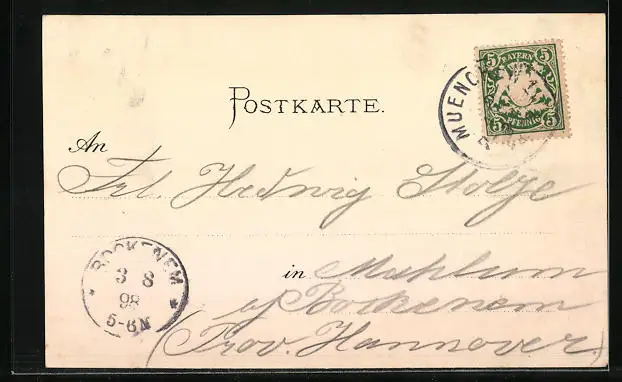 POSTKARTE.
MUENCH
5 BAYERN 5
5 PFENNIG 5
An
Frl. Hedwig Stolze
BOCKENEM
3 8
98
5-6N
in Mahlum
a/ Bockenem
(Prov. Hannover.)